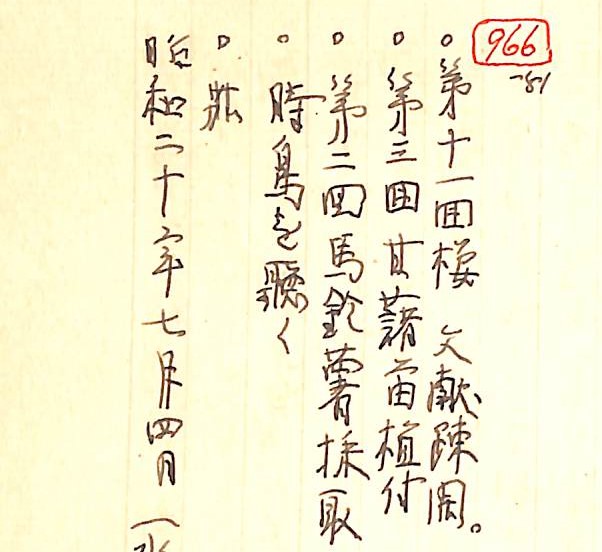 966
○第十一回桜 文献疎開。
○第三回甘藷苗植付
○第二回馬鈴薯採取
○時鳥を聴く
○
昭和二十年七月四日(水